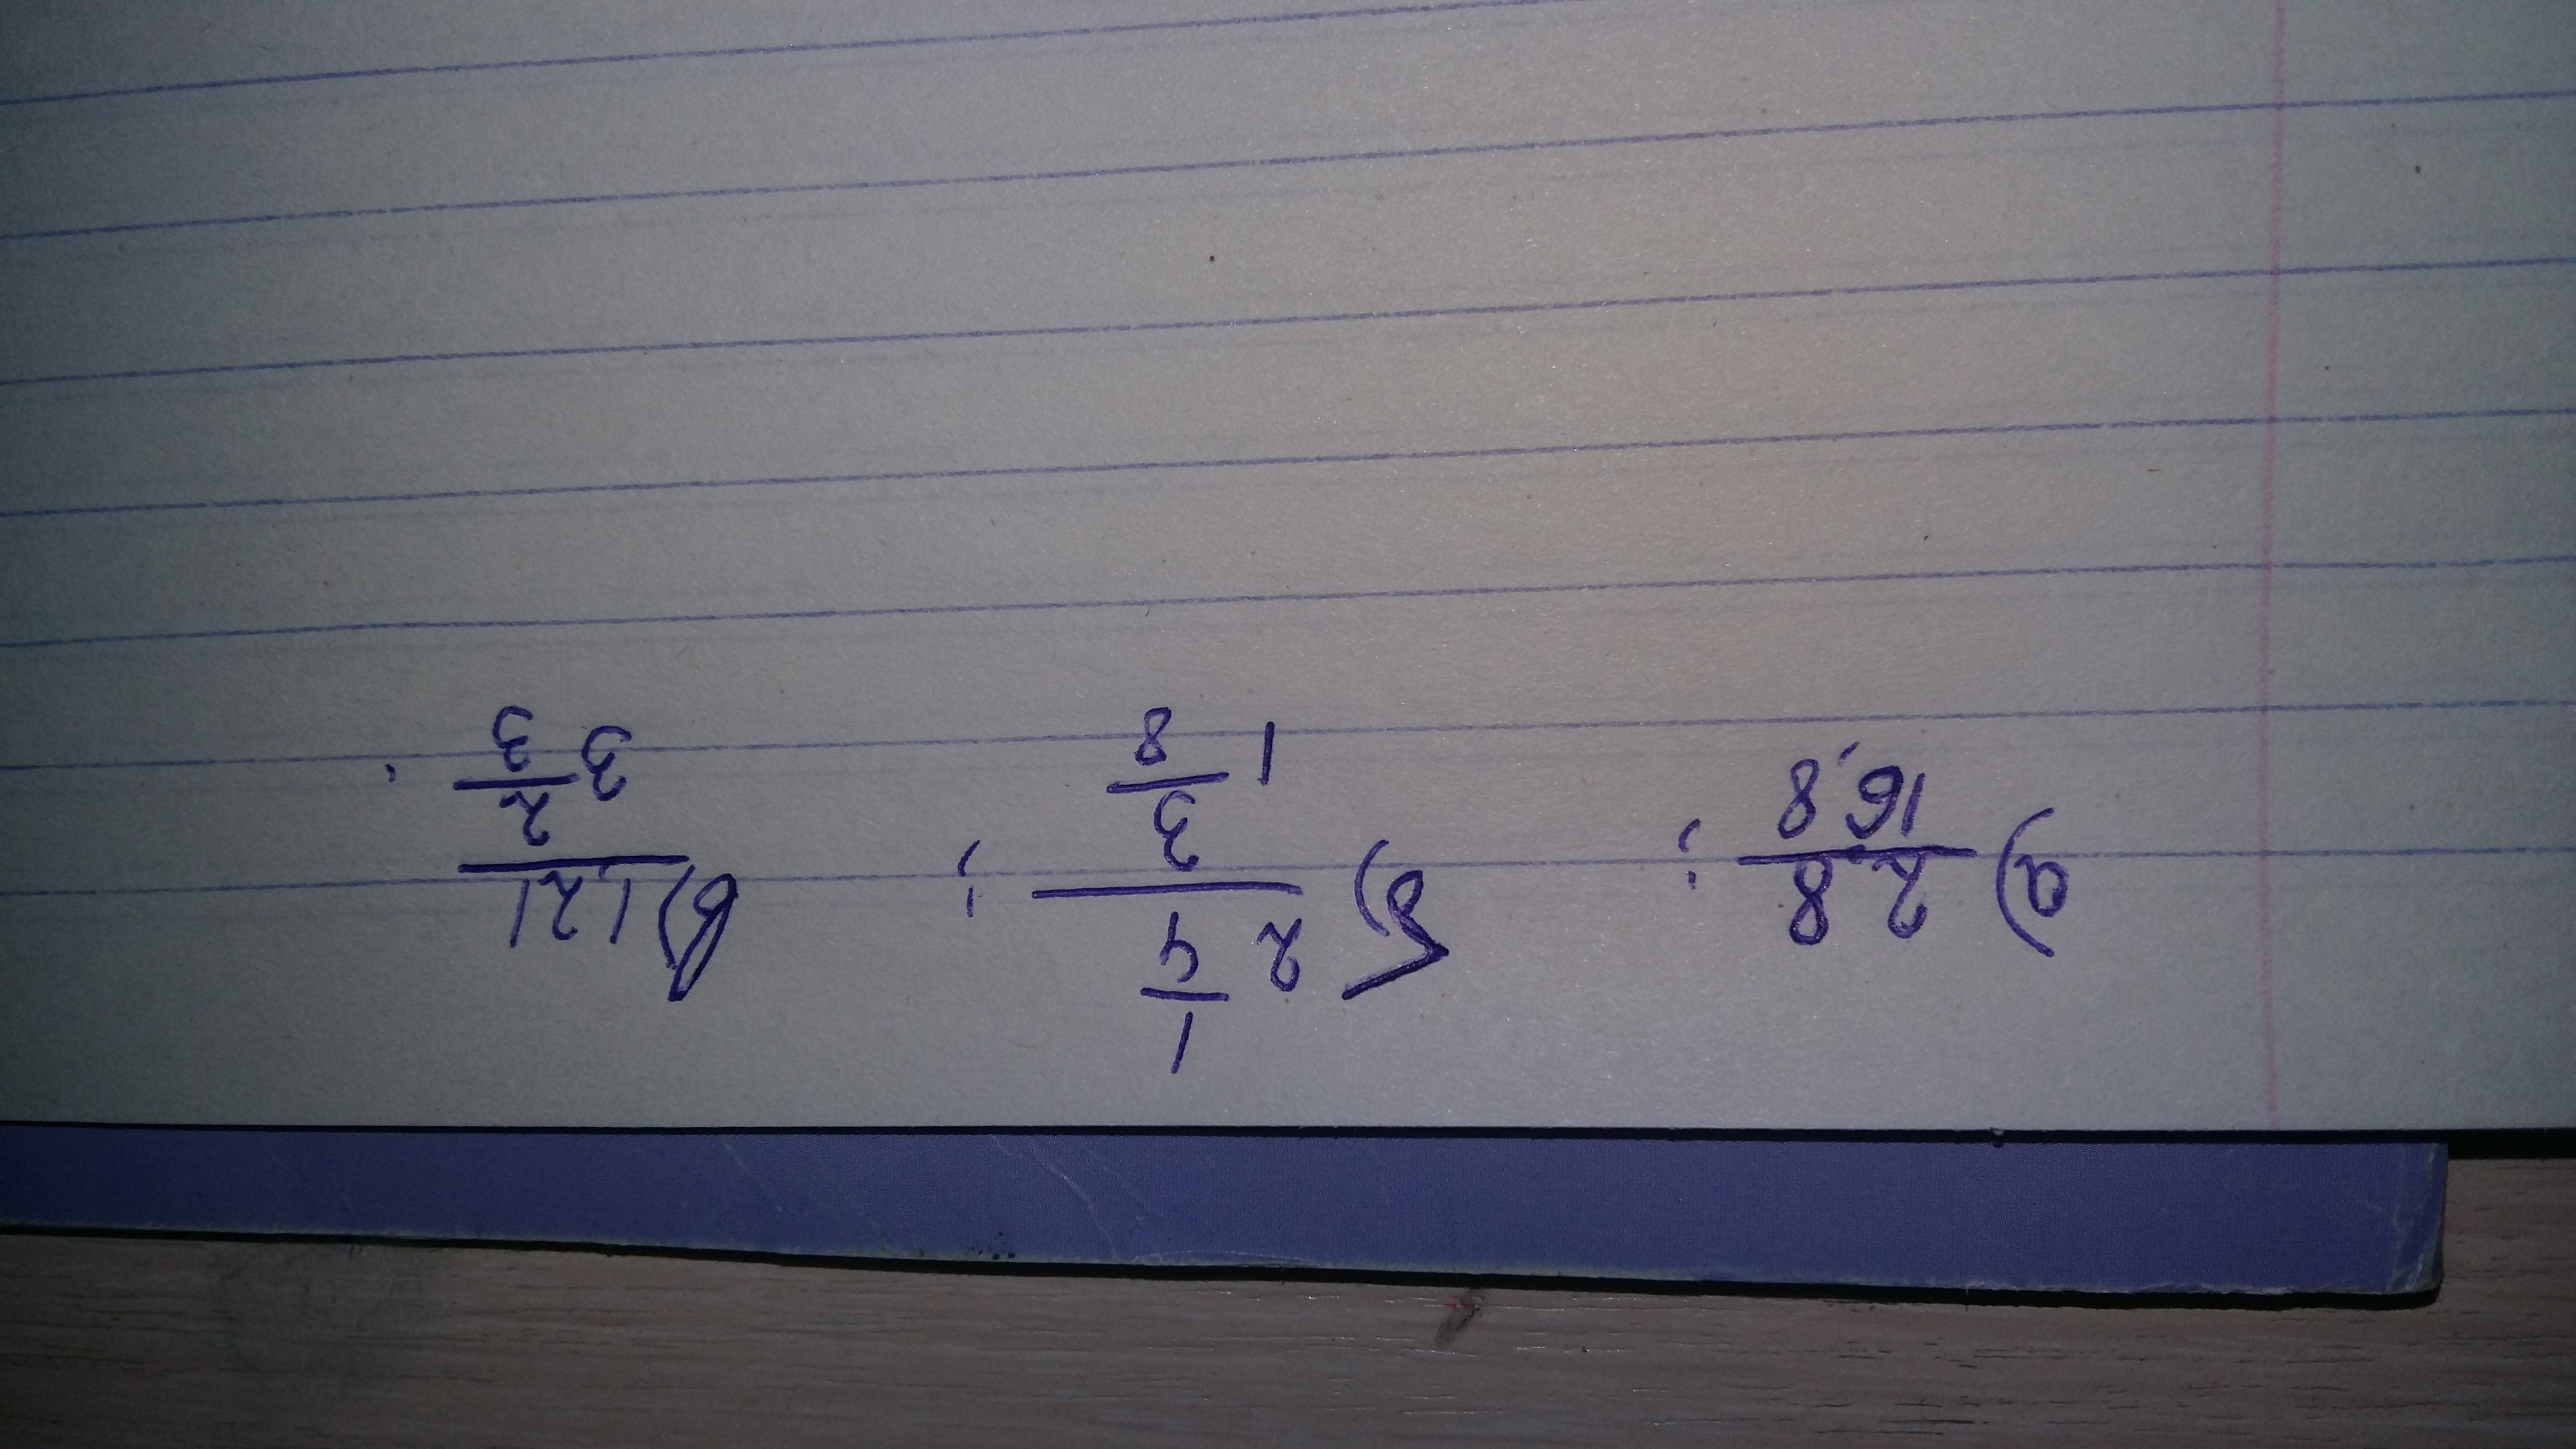 а) 2,8/16,8 ; б) (2 1/4)/(1 3/8) ; в) 1,21/(3 2/3) .